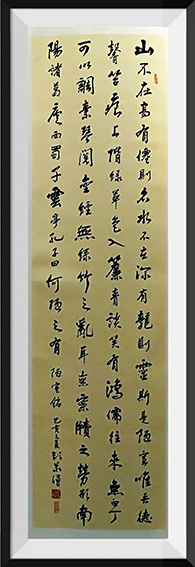 山不在高有僊則名水不在深有龍則靈斯是陋室唯吾德
馨苔痕上階綠草色入簾青談笑有鴻儒往來無白丁
可以調素琴閱金經無絲竹之亂耳無案牘之勞形南
陽諸葛廬西蜀子雲亭孔子曰何陋之有 陋室銘